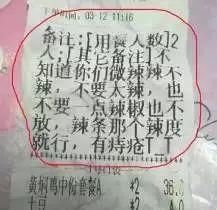 下单时间:03-12 11:16
备注:[用餐人数]2
人;[其它备注]不
知道你们微辣辣不
辣，不要太辣，也
不要一点辣椒也不
放，辣条那个辣度
就行，有痔疮T_T
黄焖鸡中份套餐A *2 36.0
土豆 *2